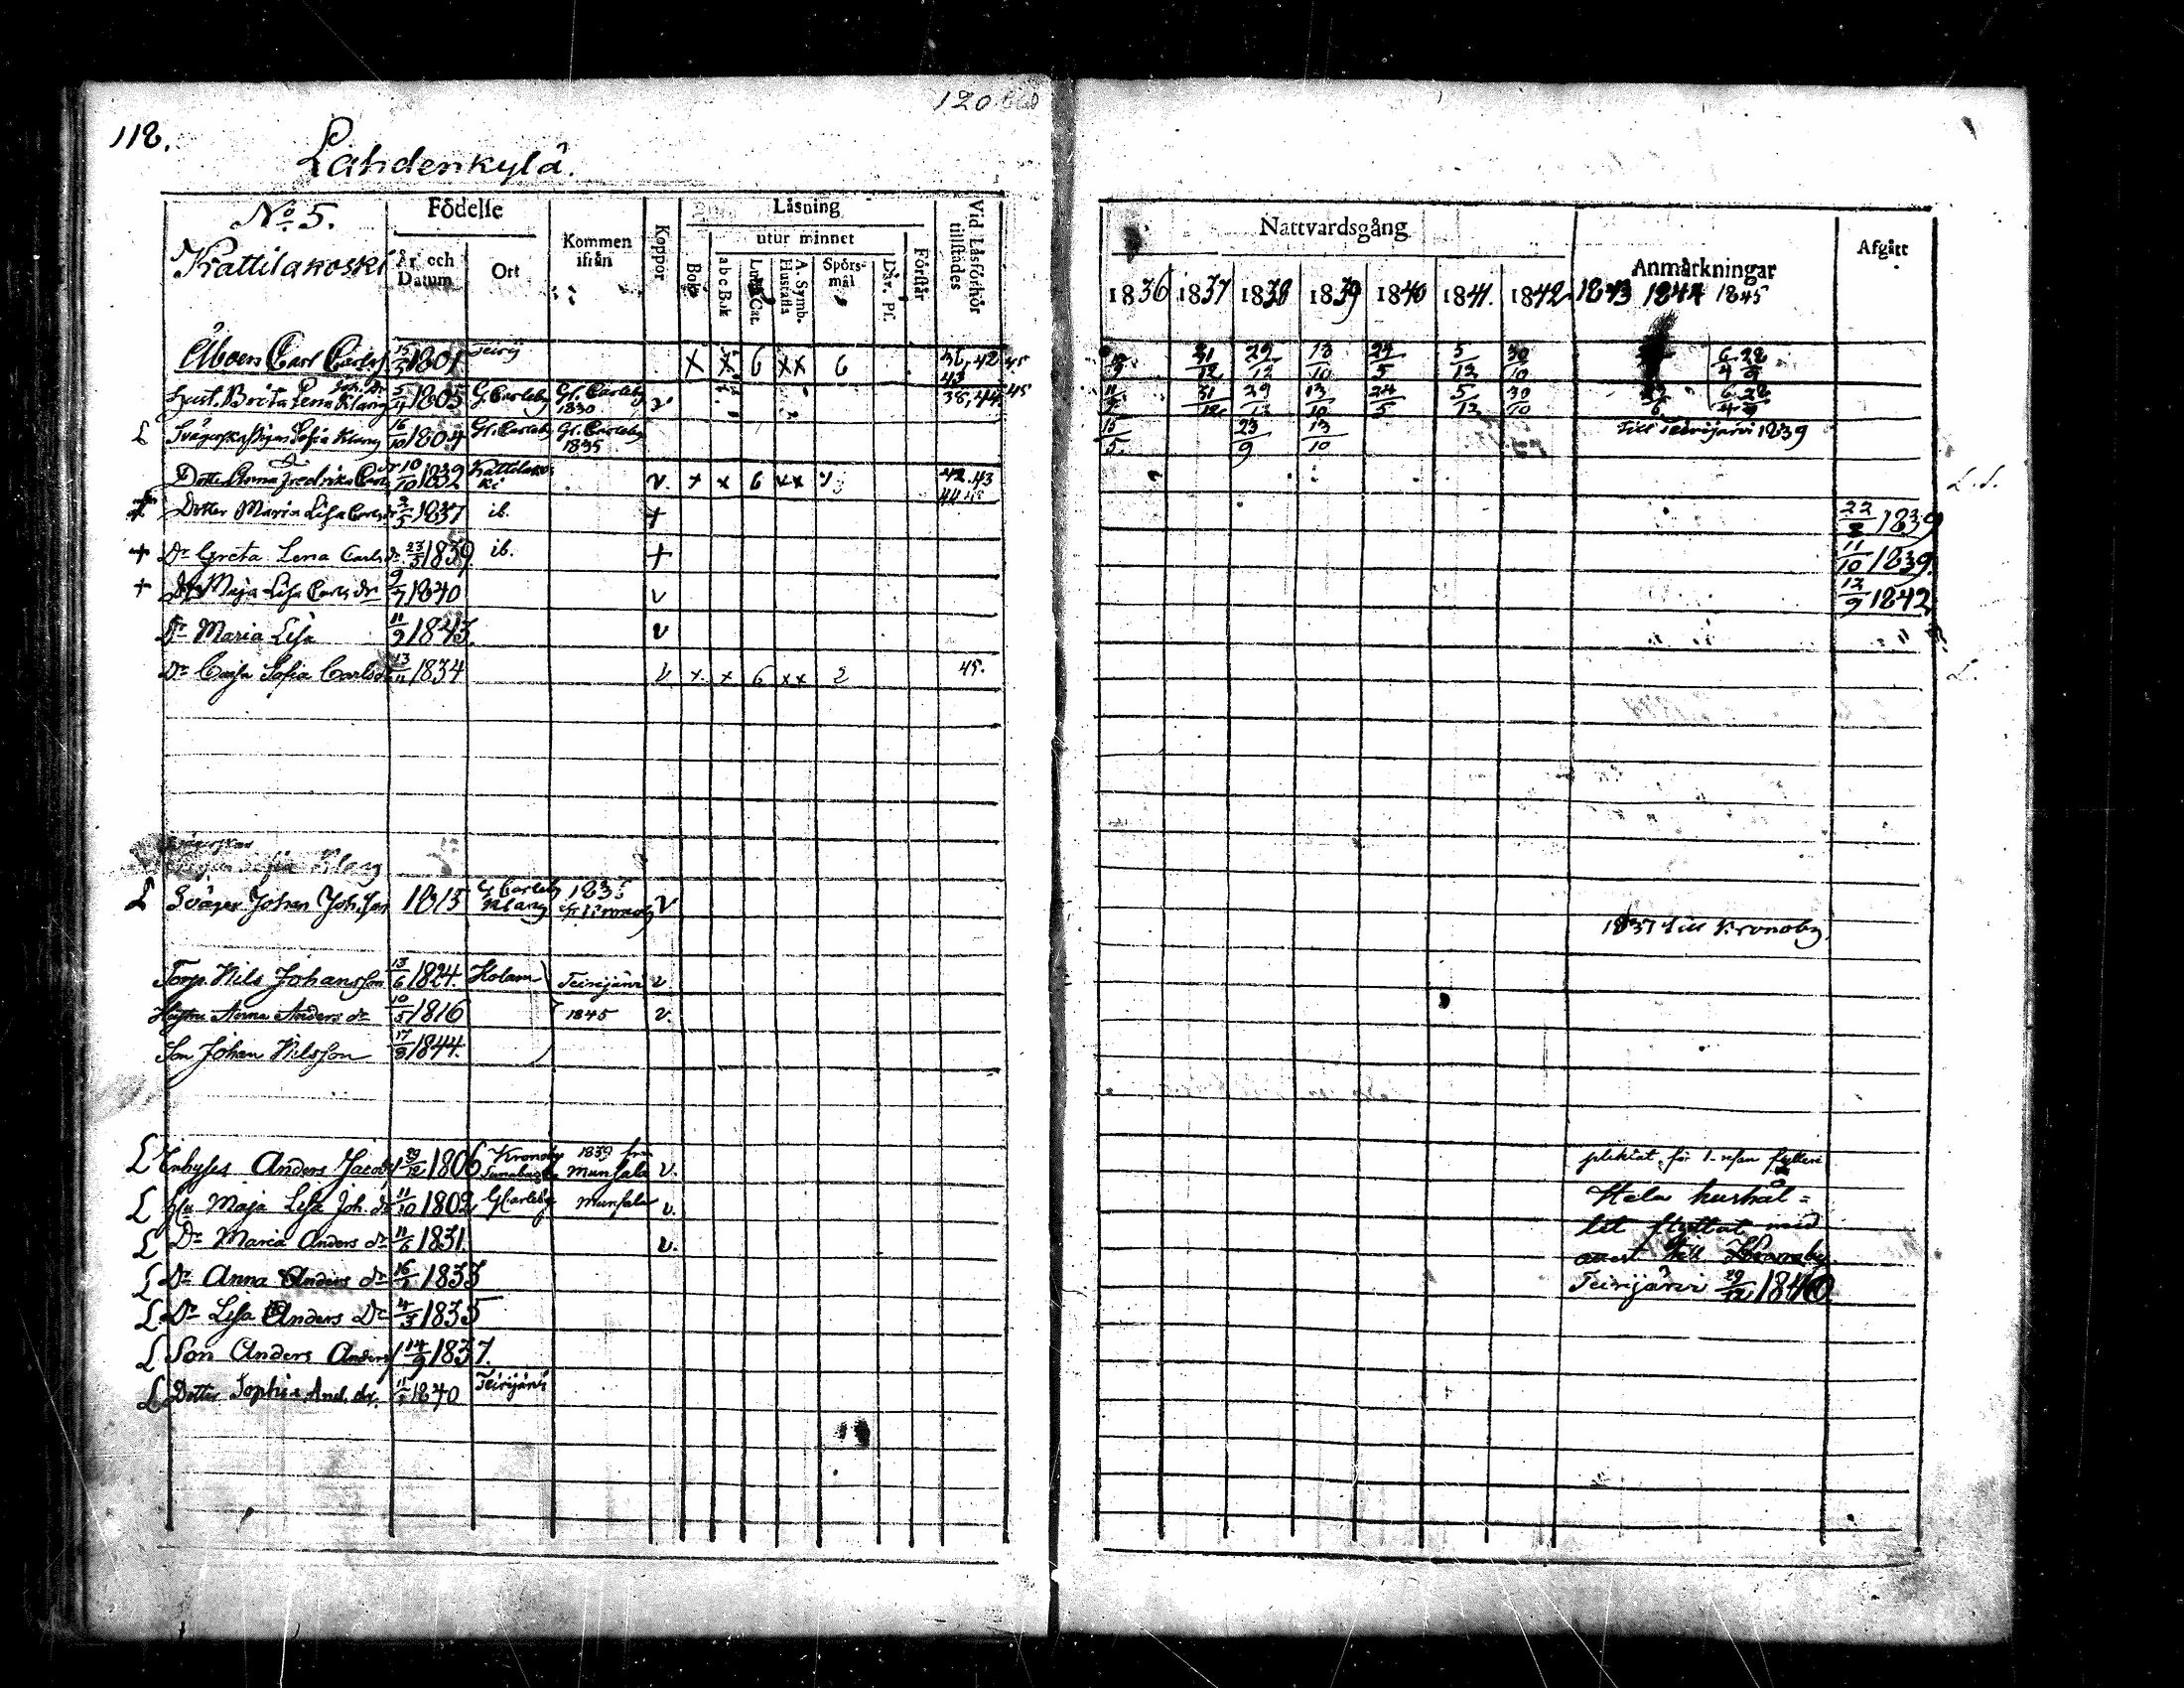 118.
120
Lahdenkylä.
No 5.
Kattilakoski
Födelse
År och Datum
Ort
Kommen ifrån
Koppor
Läsning
utur minnet
Bok
a b c Bok
Luth. Cat.
A. Symb. Hustafla
Spörsmål
Dav. Ps.
Förstår
Vid Läsförhör tillstädes
Nattvardsgång
1836 1837 1838 1839 1840 1841. 1842
Anmärkningar
1843 1844 1845
Afgått
Åboen Carl Carlss 15/3 1801 Teirij X X 6 XX 6 36, 42 45 43 31/12 29/12 13/10 24/5 5/12 30/10 6/4 28/9
Hust. Brita Lena Joh. Dr Klang 5/4 1805 G. Carleby Gl. Carleby 1830 v 38, 44 45 11/9 31/12 29/12 13/10 24/5 5/12 30/10 6/4 28/9
L Svägerska Pigan Sofia Klang 16/10 1804 Gl. Carleby Gl. Carleby 1835 15/5 23/9 13/10 till Teirijärvi 1839
Dotter Anna Fredrika Carls dr 10/10 1832 Kattilakoski v. x x 6 xx 42. 43 44 45
Dotter Maria Lisa Carls dr 2/5 1837 ib. + 22/8 1839
+ Dr Greta Lena Carls dr 23/3 1839 ib. + 11/10 1839.
+ Dr Maja Lisa Carls dr 9/7 1840 v 12/9 1842
Dr Maria Lisa 11/9 1843. v
Dr Cajsa Sofia Carlsdr 13/11 1834 v x x 6 xx 2 45.
Svägerskan
Pigan Sofia Klang
L Svåger Johan Joh.son 1815 G. Carleby Klang 1835 v
1837 till Kronoby
Torp. Nils Johansson 13/6 1824. Kolam Teirijärvi v.
Hustru Anna Anders dr 10/5 1816 1845 v.
Son Johan Nilsson 17/8 1844.
L Inhyses Anders Jacobss 29/12 1806 Kronoby 1839 frn Munsala v. pliktat för 1. resan fylleri
L Hu Maja Lisa Joh. dr 11/10 1802 Gl Carleby Munsala v. Hela hushål=
L Dr Maria Anders dr 11/6 1831. v. let flyttat med
attest till Kronoby
L Dr Anna Anders dr 16/1 1833 Teirijärvi 29/12 1840
L Dr Lisa Anders Dr 4/3 1835
L Son Anders Anderss 14/9 1837.
L Dotter Sophia And. dr. 1840 Teirijärvi